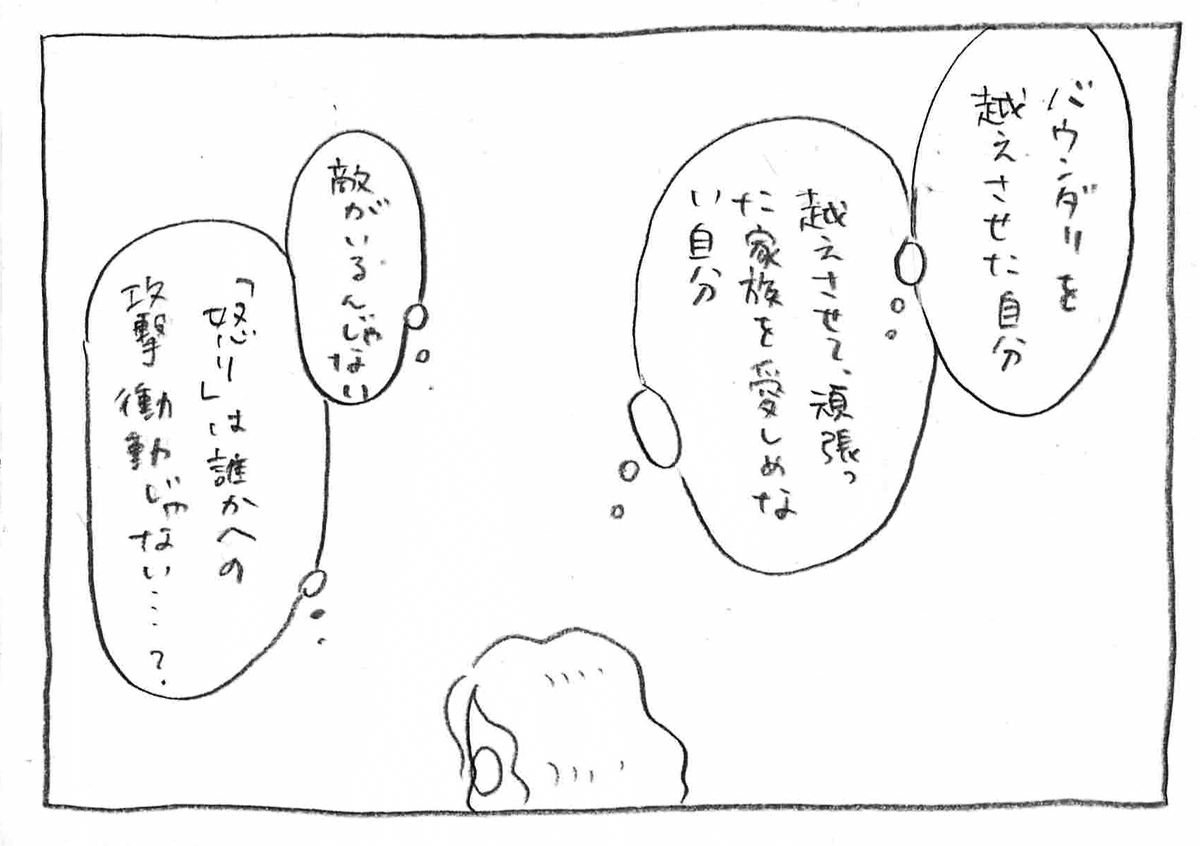 バウンダリを
越えさせた自分
越えさせて、頑張っ
た家族を愛しめな
い自分
敵がいるんじゃない
「怒り」は誰かへの
攻撃衝動じゃない…?